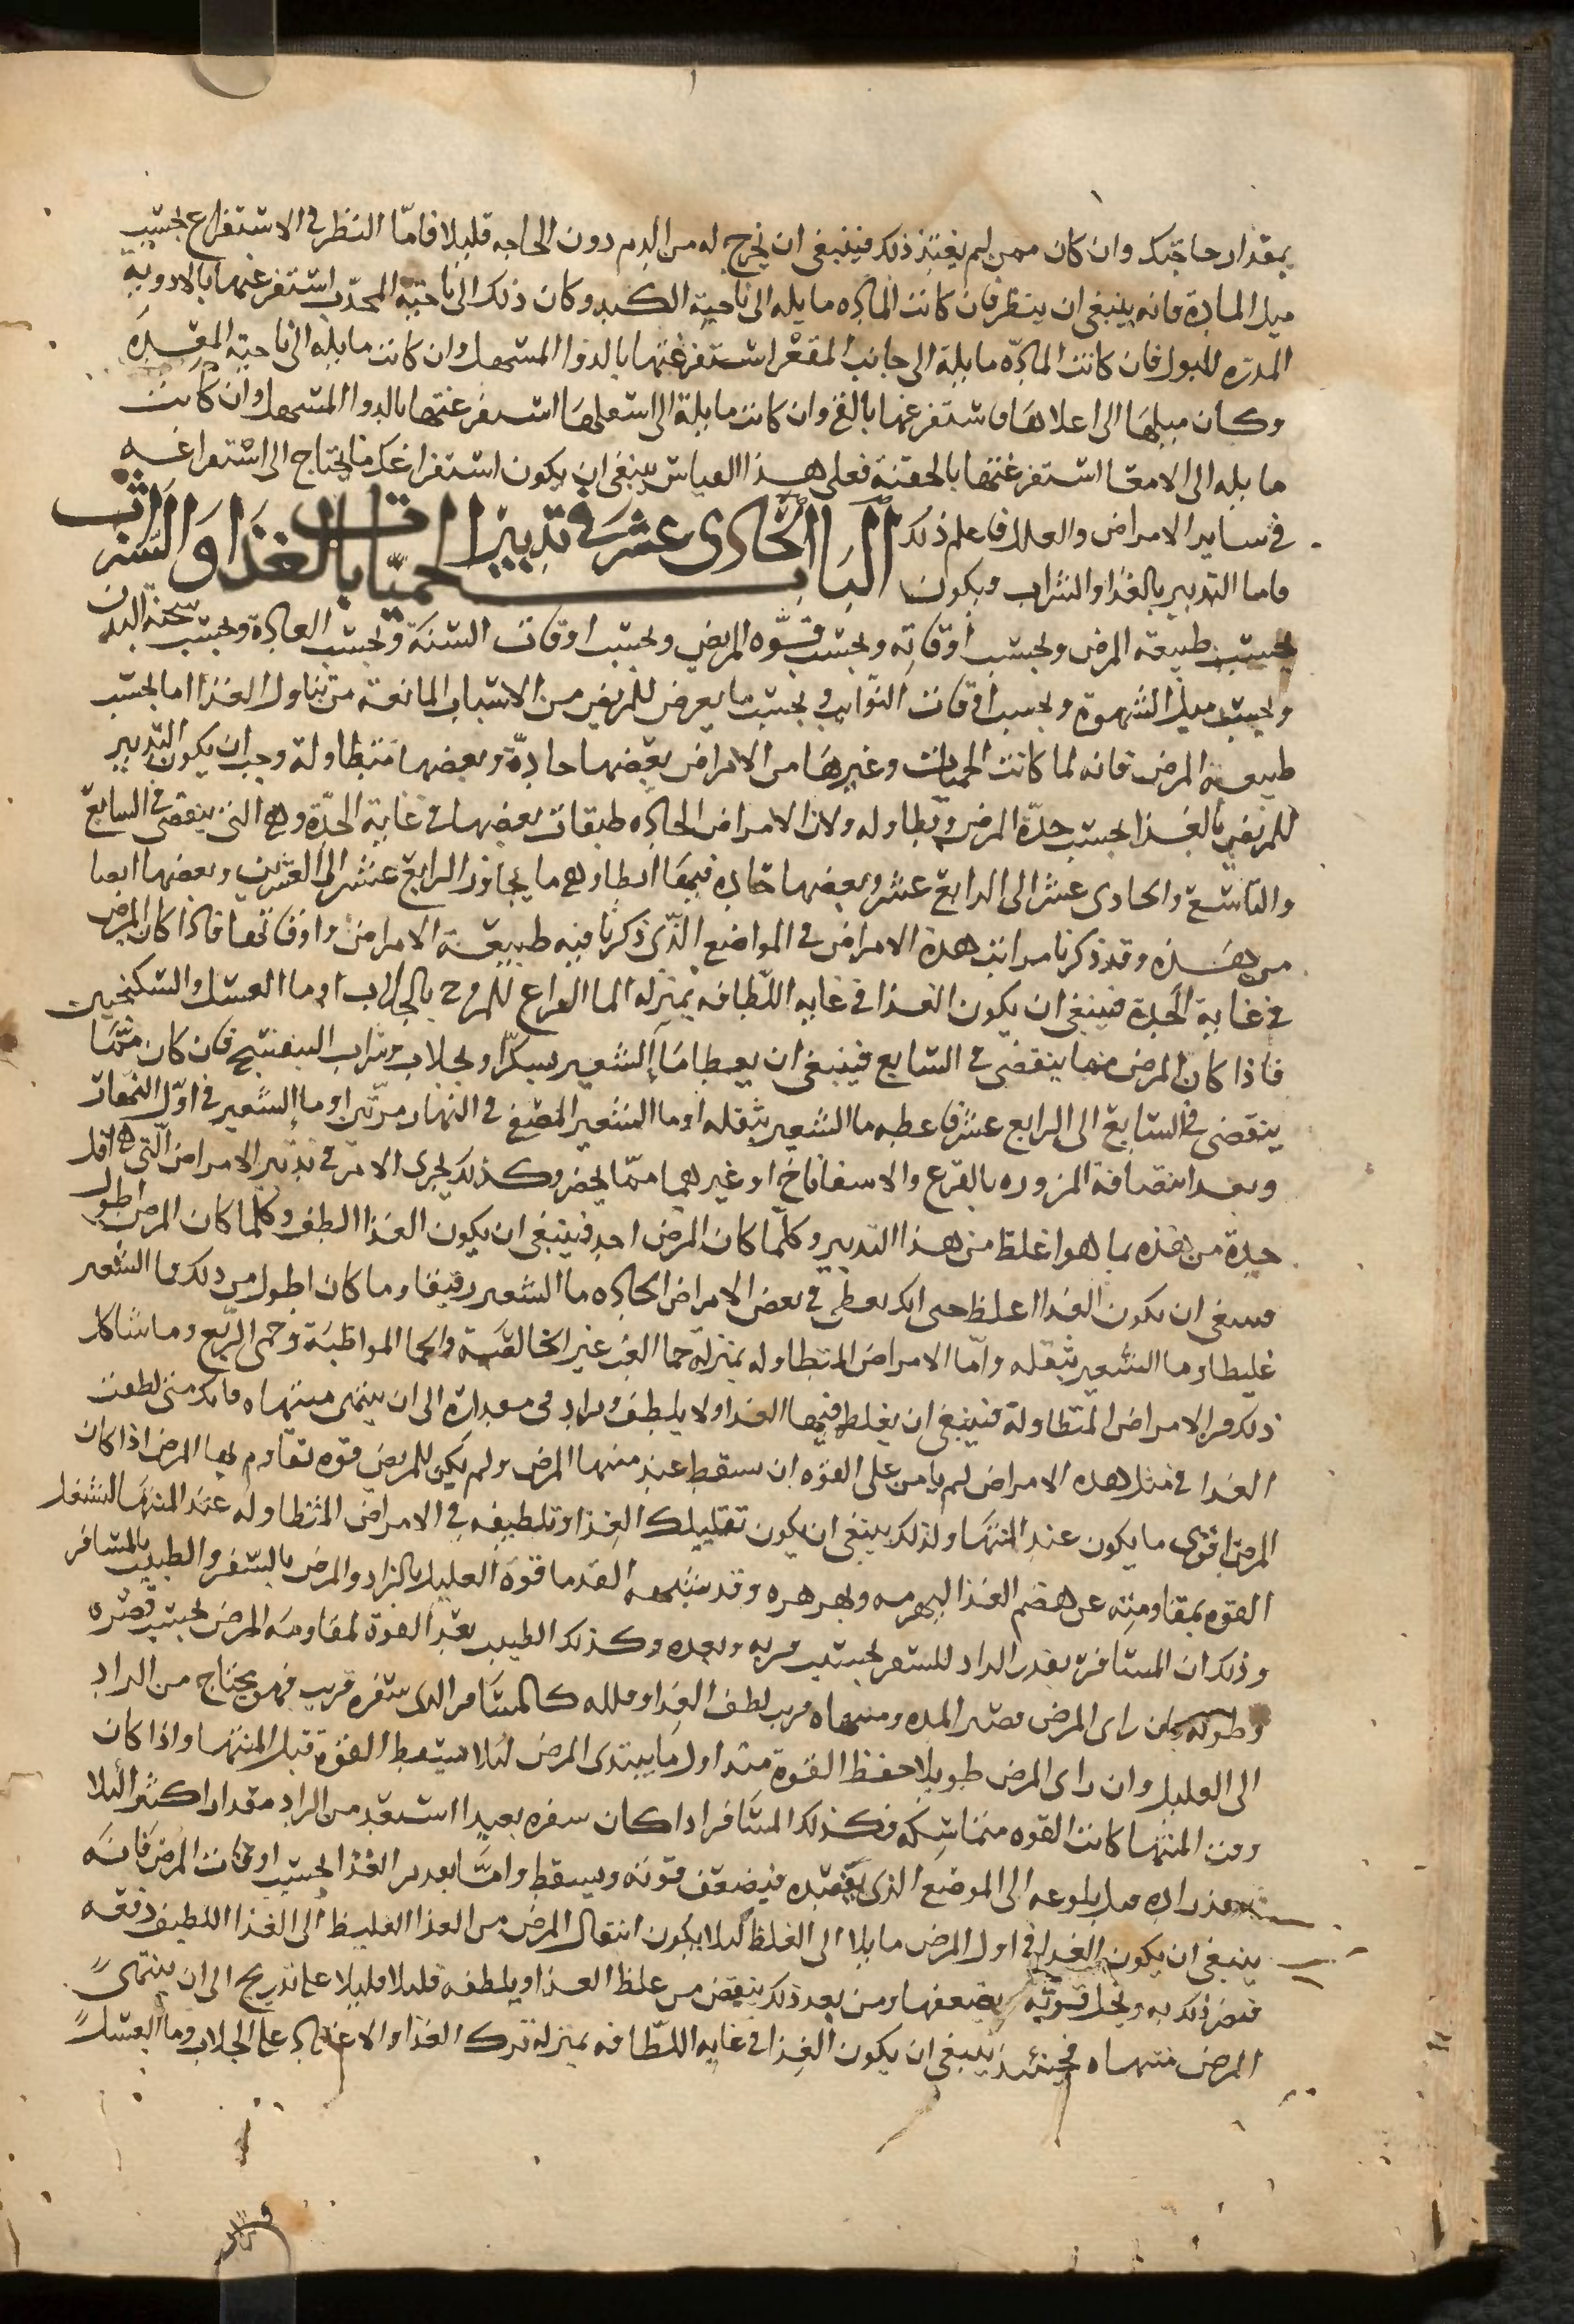 بمقدار حاجتك وان كان ممن لم يعتد ذلك فينبغى ان يخرج له من الدم دون الحاجه قليلا فامّا النظر فى الاستفراغ بحسب
ميل المادة فانه ينبغى ان ينظر فان كانت المادّه مايله الى ناحية الكبد وكان ذلك الى ناحية المحدّب استفرغتها بالادوية
المدرّه للبول فان كانت المادّه مايلة الى جانب المقعّر استفرغتها بالدوا المسهل وان كانت مايله الى ناحية المعِدَه
وكان ميلها الى اعلاها فاستفرغها بالقى وان كانت مايلة الى اسفلها استفرغتها بالدوا المسهل وان كانت
مايله الى الامعا استفرغتها بالحقنة فعلى هذا القياس ينبغى ان يكون استفراغك ما يحتاج الى استفراغه
فى ساير الامراض والعلل فاعلم ذلك الباب الحادى عشر فى تدبير الحميّات بالغذا والشراب
فاما التدبير بالغذا والشراب فيكون
بحسب طبيعة المرض وبحسب أوقاتِه وبحسب قوّه المريض وبحسب اوقات السّنَة وبحسب العادة وبحسب سحنة البدن
وبحسب ميل الشهوة وبحسب اوقات النّوايب وبحسب ما يعرض للمريض من الاسباب المانعة من تناول الغذا اما بحسب
طبيعة المرض فانه لما كانت الحميات وغيرها من الامراض بعضها حادّة وبعضها متطاولة وجب ان يكون التدبير
للمريض بالغذا بحسب حدّة المرض وتطاوله ولان الامراض الحادّه طبقات بعضها فى غاية الحدّة وهى التى ينقضى فى السابع
والتاسع والحادى عشر الى الرابع عشر وبعضها حادّه فيها ابطا وهى ما يجاوز الرابع عشر الى العشرين وبعضها ابطا
من هذه وقد ذكرنا مراتب هذة الامراض فى المواضع الذّى ذكرنا فيه طبيعة الامراض واوقاتها فاذا كان المرض
فى غاية الحدة فينبغى ان يكون الغذا فى غايه اللّطافه بمنزله الما القراح الممزوج بالجلاب او ما العسل والسكنجبين
فاذا كان المرض مما ينقضى فى السابع فينبغى ان يعطا مَاَ الشعير بسكّر او بجلاب وشراب البنفسج فان كان ممّا
ينقضى فى السّابع الى الرابع عشر فاعطه ما الشعير بثقله او ما الشعير المصفى فى النهار مرّتين او ما الشعير فى اوّل النّهار
وبعد انتصافه المزوره بالقرع والاسفاناخ او غيرهما ممّا يحضر وكذلك يجرى الامر فى تدبير الامراض الّتى هى اقل
حدة من هذه بما هو اغلظ من هذا التدبير وكلّما كان المرض احد فينبغى ان يكون الغذا الطف وكلما كان المرض اطول
فينبغى ان يكون الغذا اغلظ حتى انك تعطى فى بعض الامراض الحادّه ما الشعير رقيقا وما كان اطول من ذلك ما الشعير
غليظا وما الشعير بثقله وامّا الامراض المتطاوله بمنزلة حما الغب غير الخالصة والحما المواظبَة وحمى الرّبع وما شاكل
ذلك من الامراض المتطاولة فينبغى ان يغلظ فيها الغذا ولا يلطف ويزاد فى مقداره الى ان ينتهى منتهاه فانك متى لطفت
الغذا فى مثل هذه الامراض لم يامن على القوّه ان تسقط عند منتها المرض ولم يكن للمريض قوّه تقاوم بها المرض اذا كان
المرض اقوى ما يكون عند المنتها ولذلك ينبغى ان يكون تقليلك الغذا وتلطيفه فى الامراض المتطاوله عند المنتها لتشتغل
القوه بمقاومته عن هضم الغذا وقد شبّه القدما قوة العليل بالزاد والمرض بالسّفر والطبيب بالمسافر
وذلك ان المسافر يقدر الزاد للسفر بحسب قربه وبعده وكذلك الطبيب يقدّر القوة لمقاومة المرض بحسب قصره
وطوله فان راى المرض قصير المده ومنتهاه قريب لطف الغذا وقلله كالمسافر الذى سفره قريب فهو يحتاج من الزاد
الى القليل وان راى المرض طويلا حفظ القوة منذ اول ما يبتدى المرض لئلا تسقط القوّة قبل المنتها واذا كان
وقت المنتها كانت القوه متماسكه وكذلك المسافر اذا كان سفره بعيدا استعدّ من الزاد مقدارا كثيرا لئلا
ينفد زاده قبل بلوغه الى الموضع الذى يقصده فيضعف قوته ويسقط وامّا تقدير الغذا بحسب اوقات المرض فانَه
ينبغى ان يكون الغذا فى اول المرض مايلا الى الغلظ لئلا يكون انتقال المرض من الغذا الغليظ الى الغذا اللطيف دفعه
فيضر ذلك به ويخل قوته ويضعفها ومن بعد ذلك ينقص من غلظ الغذا ويلطفه قليلا قليلا على تدريج الى ان ينتهى
المرض منتهاه فحينئذ ينبغى ان يكون الغذا فى غايه اللّطافه بمنزله ترك الغذا والاعتماد على الجلاب وما العسل